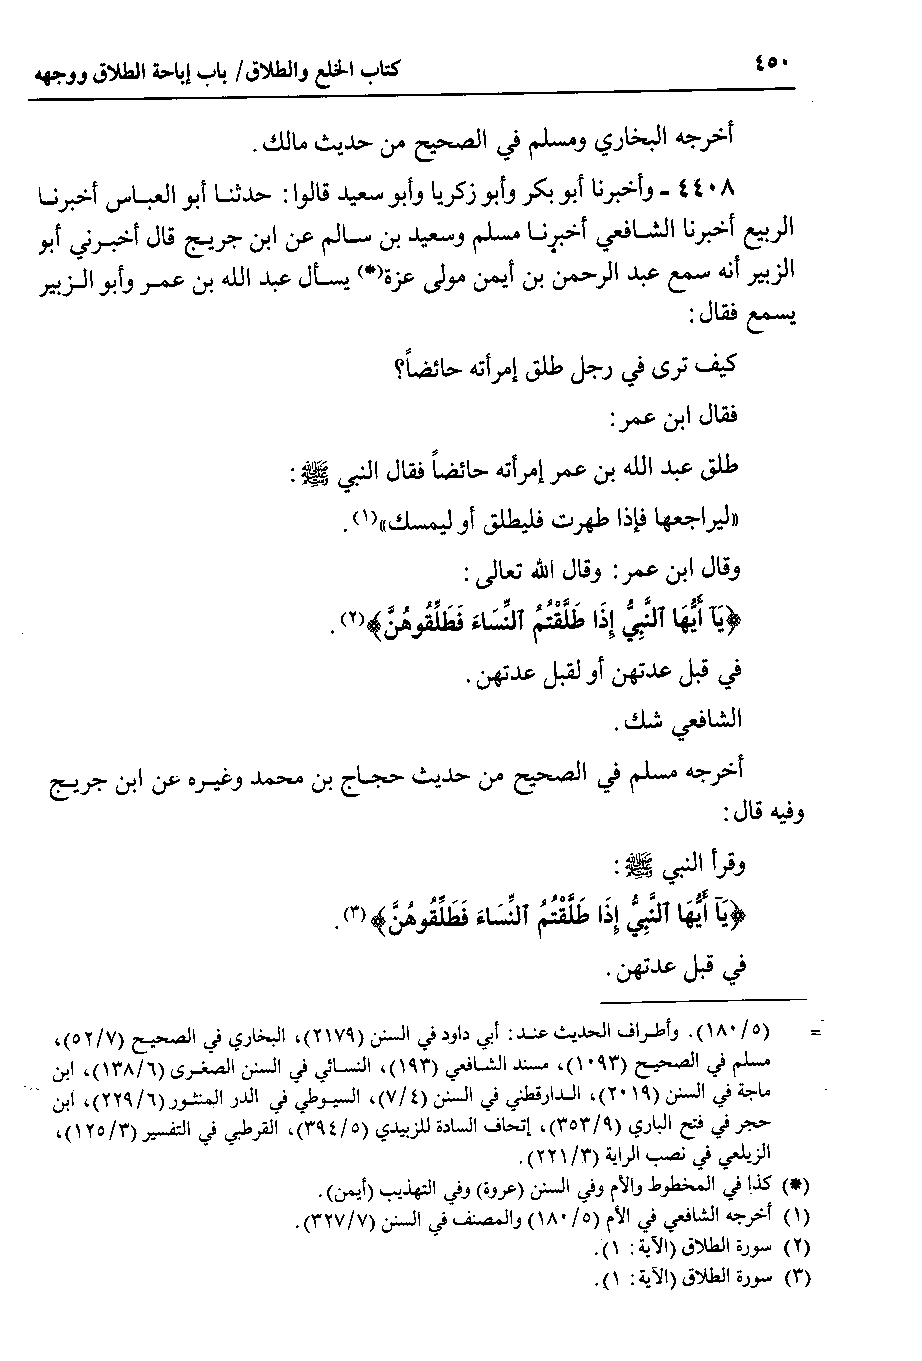 ٤٥٠
كتاب الخلع والطلاق/ باب إباحة الطلاق ووجهه
أخرجه البخاري ومسلم في الصحيح من حديث مالك.
٤٤٠٨ - وأخبرنا أبو بكر وأبو زكريا وأبو سعيد قالوا: حدثنا أبو العباس أخبرنا
الربيع أخبرنا الشافعي أخبرنا مسلم وسعيد بن سالم عن ابن جريج قال أخبرني أبو
الزبير أنه سمع عبد الرحمن بن أيمن مولى عزة(*) يسأل عبد الله بن عمر وأبو الزبير
يسمع فقال:
كيف ترى في رجل طلق إمرأته حائضاً؟
فقال ابن عمر:
طلق عبد الله بن عمر إمرأته حائضاً فقال النبي ﷺ:
«ليراجعها فإذا طهرت فليطلق أو ليمسك»(١).
وقال ابن عمر: وقال الله تعالى:
﴿يَآ أَيُّهَا ٱلنَّبِيُّ إِذَا طَلَّقْتُمُ ٱلنِّسَاءَ فَطَلِّقُوهُنَّ﴾(٢).
في قبل عدتهن أو لقبل عدتهن.
الشافعي شك.
أخرجه مسلم في الصحيح من حديث حجاج بن محمد وغيره عن ابن جريج
وفيه قال:
وقرأ النبي ﷺ:
﴿يَآ أَيُّهَا ٱلنَّبِيُّ إِذَا طَلَّقْتُمُ ٱلنِّسَاءَ فَطَلِّقُوهُنَّ﴾(٣).
في قبل عدتهن.
= (١٨٠/٥). وأطراف الحديث عند: أبي داود في السنن (٢١٧٩)، البخاري في الصحيح (٥٢/٧)،
مسلم في الصحيح (١٠٩٣)، مسند الشافعي (١٩٣)، النسائي في السنن الصغرى (١٣٨/٦)، ابن
ماجة في السنن (٢٠١٩)، الدارقطني في السنن (٧/٤)، السيوطي في الدر المنثور (٢٢٩/٦)، ابن
حجر في فتح الباري (٣٥٣/٩)، إتحاف السادة للزبيدي (٣٩٤/٥)، القرطبي في التفسير (١٢٥/٣)،
الزيلعي في نصب الراية (٢٢١/٣).
(*) كذا في المخطوط والأم وفي السنن (عروة) وفي التهذيب (أيمن).
(١) أخرجه الشافعي في الأم (١٨٠/٥) والمصنف في السنن (٣٢٧/٧).
(٢) سورة الطلاق (الآية: ١).
(٣) سورة الطلاق (الآية: ١).